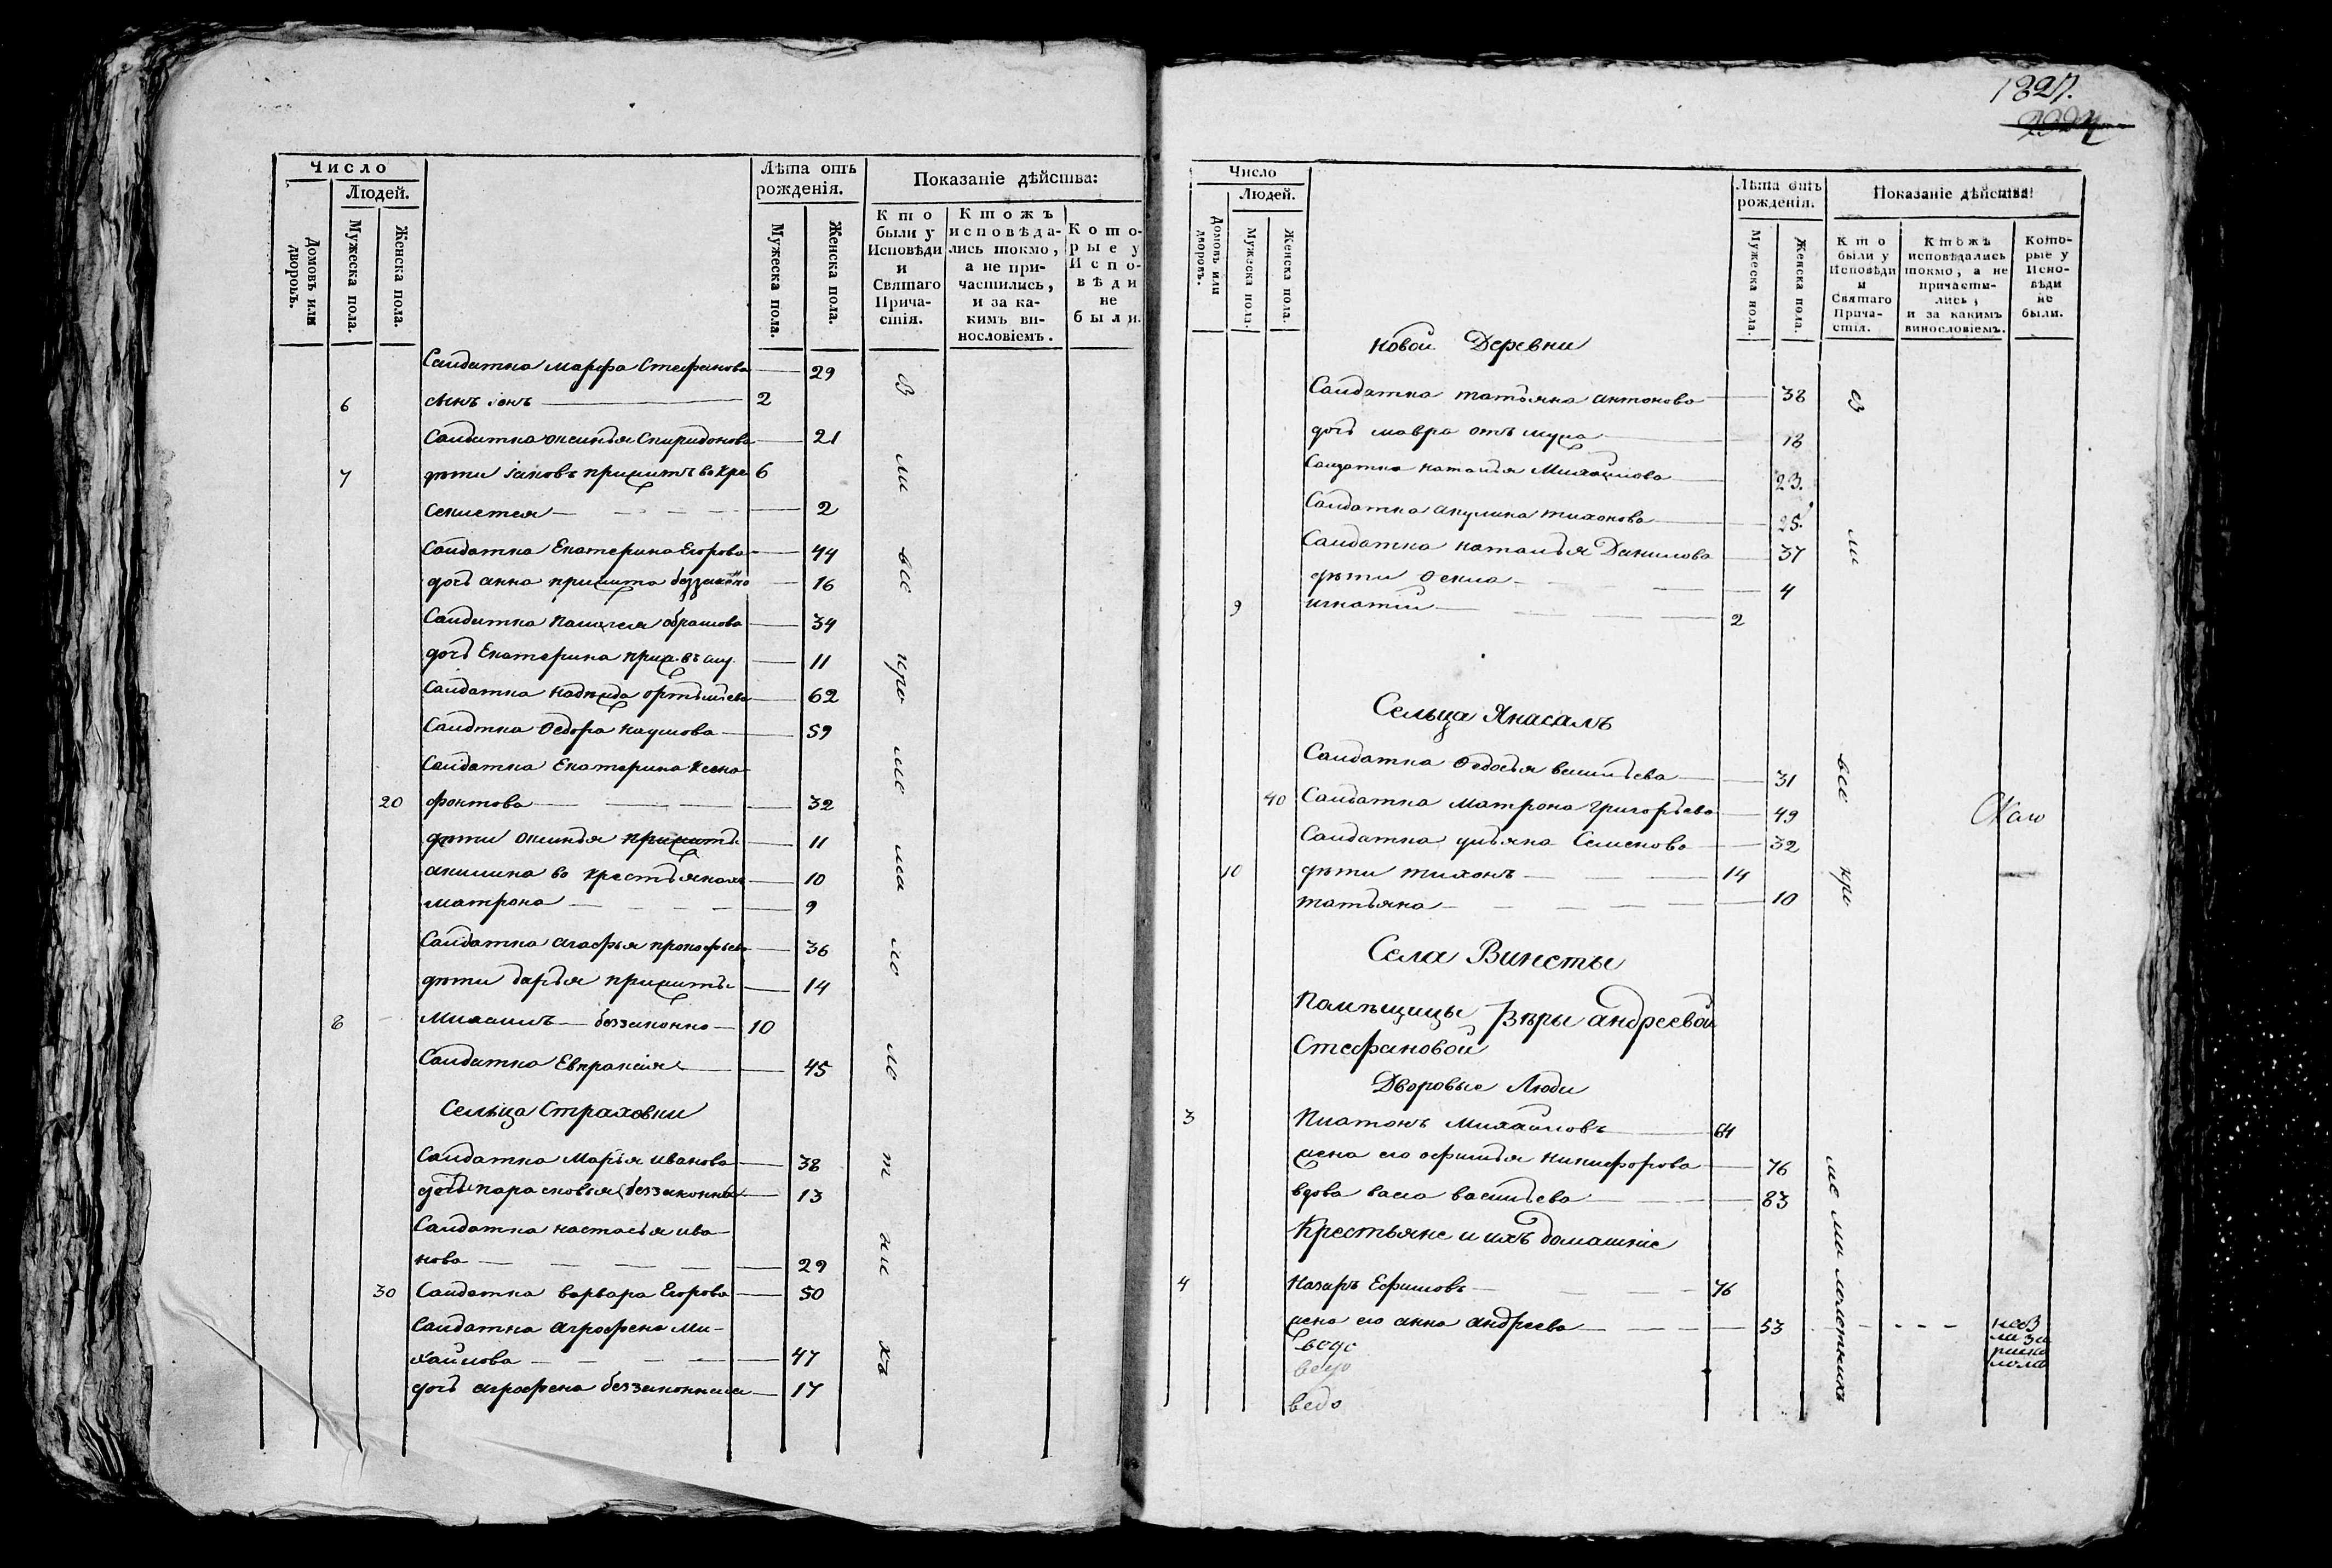 Число
Людей.
Домовъ или дворовъ.
Мужеска пола.
Женска пола.
Лѣта отъ рожденія.
Мужеска пола.
Женска пола.
Показаніе дѣйства:
Кто были у Исповѣди и Святаго Причастія.
Ктожъ исповѣдались токмо, а не причастились, и за какимъ винословіемъ.
Которые у Исповѣди не были.
Салдатка марфа Стефанова 29
6 сынъ іонъ 2
Салдатка оксинья Спиридонова 21
7 дѣти іаковъ прижитъ во кре 6
2
Салдатка Екатерина Егорова 44
дочь анна прижита беззаконо 16
Салдатка Пелагея абрамова 34
дочь Екатерина приж. въ 11
Салдатка надежда 62
Салдтка Ѳедора наумова 59
Салдатка Екатерина Ксено
20 фонтова 32
дѣти оксинья прижиты 11
акилина во крестьянахъ 10
матрона 9
Салдатка агафья прокофьева 36
дѣти дарья прижиты 14
8 Михаилъ беззаконно 10
Салдатка Евпраксія 45
Сельца Страховки
Салдатка Марья иванова 38
дочь парасковья беззаконна 13
Салдатка настасья ива
нова 29
30 Салдатка варвара Егорова 50
Салдатка аграфена Ми-
хайлова 47
дочь аграфена беззаконная 17
1827.
Число
Людей.
Домовъ или дворовъ.
Мужеска пола.
Женска пола.
Лѣта отъ рожденія.
Мужеска пола.
Женска пола.
Показаніе дѣйства:
Кто были у Исповѣди и Святаго Причастія.
Ктожъ исповѣдались токмо, а не причастились, и за какимъ винословіемъ.
Которые у Исповѣди не были.
Новой Деревни
Салдатка татьяна антонова 38
дочь мавра отъ мужа 18
Салдатка наталья Михайлова 23.
Салдатка акулина тихонова 25.
Салдатка наталья Данилова 37
дѣти Ѳекла 4
9 игнатій 2
Сельца Янасалъ
Салдатка Ѳедосья васильева 31
40 Салдатка Матрона григорьева 49
Салдатка ульяна Семенова 32
10 дѣти тихонъ 14
татьяна 10
Села Винсты
Помѣщицы Вѣры андреевой
Стефановой
Дворовые Люди
3 Платонъ Михайловъ 64
жена его афимья Никифорова 76
вдова васса васильева 83
Крестьяне и ихъ домашніе
4 Назаръ Ефимовъ 76
жена его анна андреева 53